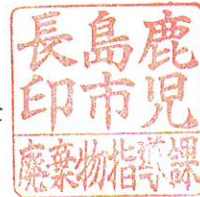 鹿児
島市
長印
廃棄物指導課